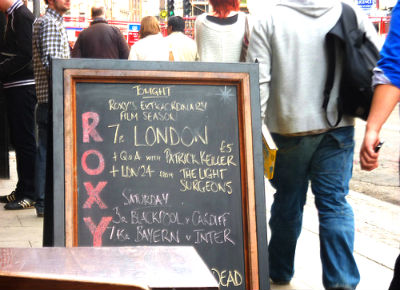 TONIGHT
ROXY'S EXTRAORDINARY
FILM SEASON
ROXY
7: LONDON
£5
+ Q&A WITH PATRICK KEILLER
+ LDN 24 FROM THE LIGHT
SURGEONS
SATURDAY
3: BLACKPOOL V CARDIFF
7:45: BAYERN V INTER
DEAD